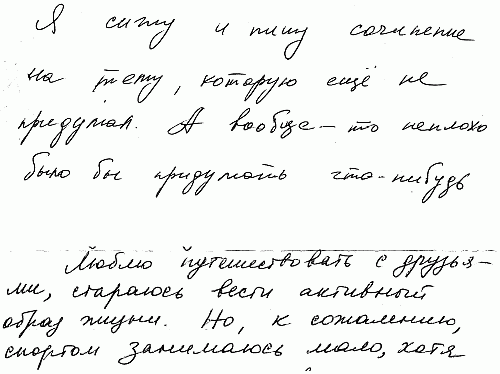 Я сижу и пишу сочинение
на тему, которую ещё не
придумал. А вообще-то неплохо
было бы придумать что-нибудь
Люблю путешествовать с друзья-
ми, стараюсь вести активный
образ жизни. Но, к сожалению,
спортом занимаюсь мало, хотя